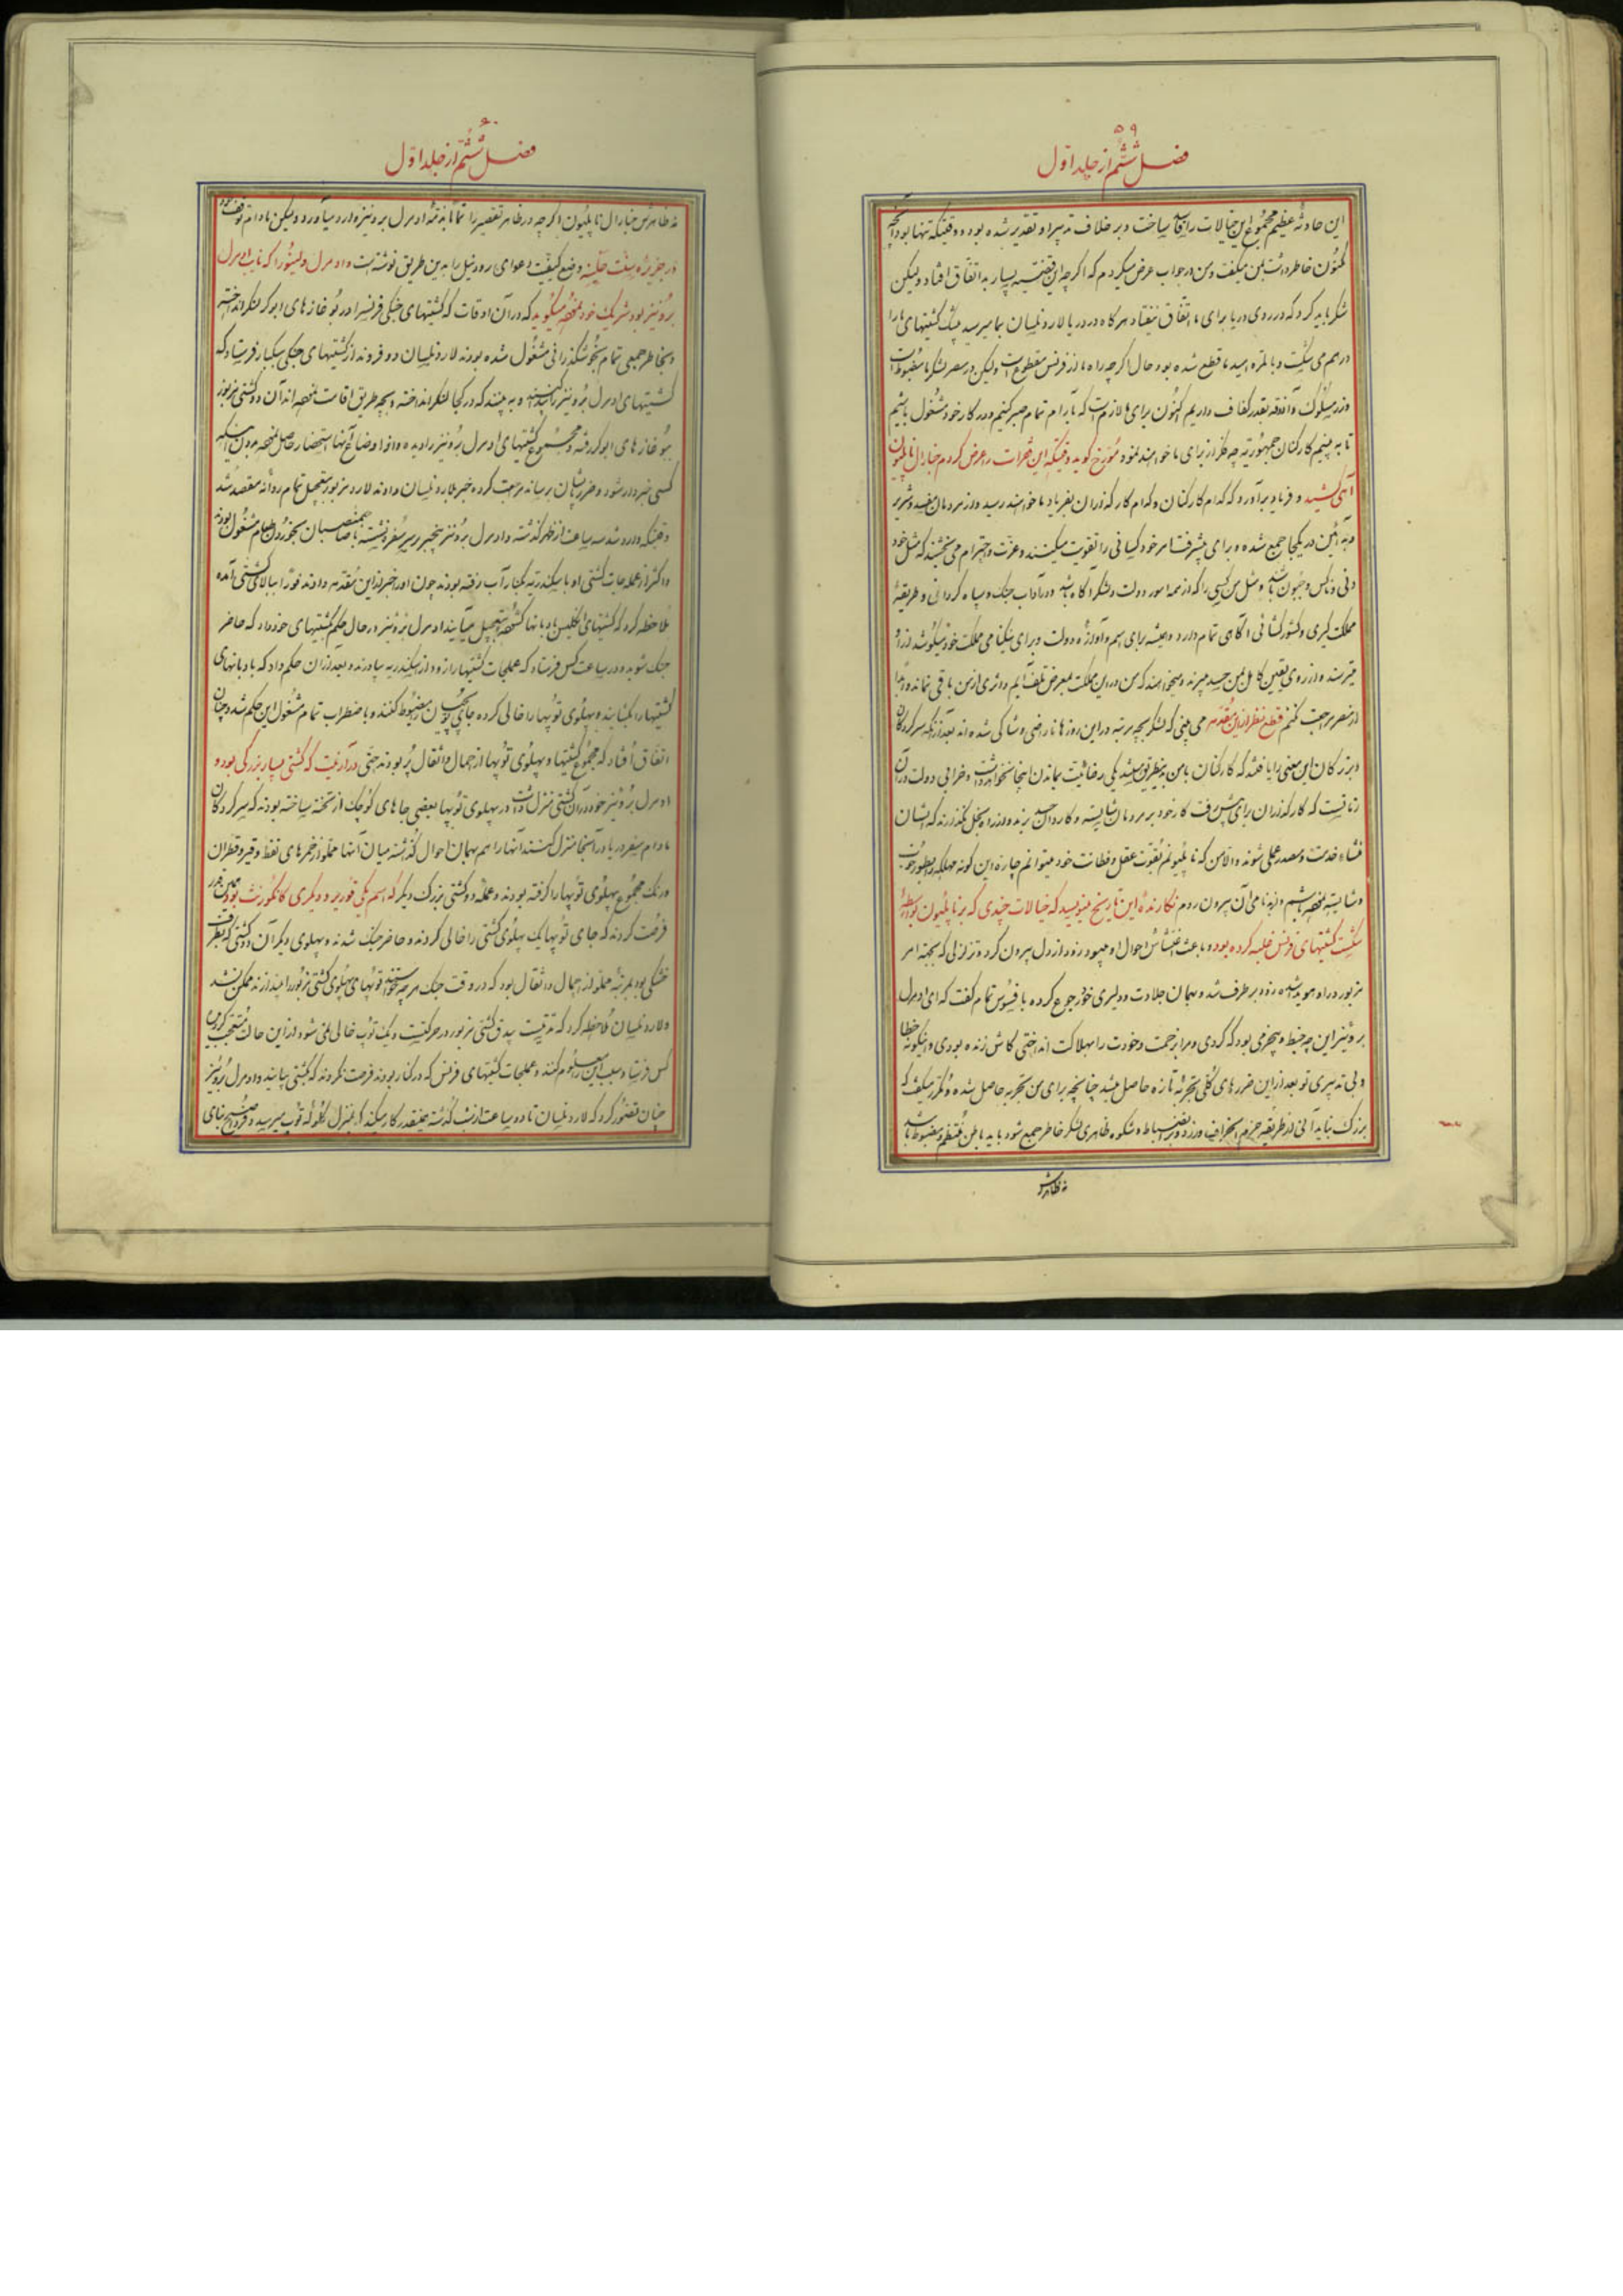 ۵۹
فصل ششم از جلد اول
این حادثه عظیم مجموع این خیالات را ساخت و بر خلاف تدبیر او تقدیر شده بود و وقتیکه تنها بود آنچه
مکنون خاطر داشت بمن میگفت و من در جواب عرض میکردم که اگرچه این قضیه بسیار بد اتفاق افتاد ولیکن
شکر باید کرد که در روی دریا برای ما اتفاق نیفتاد هرگاه در دریا لارد نلسان بما میرسید کشتیهای ما را
درهم می شکست و بالمره امید ما قطع شده بود حال اگرچه راه ما از فرنس مقطوع است ولیکن در مصر لشکر ما مضبوط است
و آذوقه بقدر کفاف داریم اکنون برای ما لازم است که بآرام تمام صبر کنیم و در کار خود مشغول باشیم
تا به بینیم کارکنان جمهوریه چه فکر از برای ما خواهند نمود مورخ گوید وقتیکه این فقرات را عرض کردم جنارال ناپلیون
آهی کشید و فریاد برآورد که کدام کارکنان و کدام کارگذاران بفریاد ما خواهند رسید و از مردمان مفسد و شریر
در یکجا جمع شده و برای پیشرفت امر خود کسانی را تقویت میکنند و عزت و احترام می بخشند که مثل خود
دنی و ناکس و باشند و مثل من کسی را که از همه امور دولت و لشکر آگاه باشد و در آداب جنگ و سپاه گردانی و طریقه
مملکت گیری و کشور گشائی آگاهی تمام دارد و همیشه برای اسم و آوازه دولت و برای نیکنامی مملکت خود میکوشد از او
میترسند و از روی یقین کامل بمن حسد میبرند و میخواهند که من در این مملکت بمعرض تلف آیم و اثری از من باقی نماند
از مصر مراجعت کنم قطع نظر از این مقدمه می بینی که لشکر بچه مرتبه در این روزها ناراضی و شاکی شده اند بعد از آنکه سرکردگان
و بزرگان این معنی را یافتند که کارکنان با من یکی رضائیت بماندن اینجا نخواهد داشت و خرابی دولت در آن
زمانیست که کارگذاران برای پیش رفت کار خود بر مردمان شایسته و کاردان حسد برند و نگذارند که ایشان
منشاء خدمت و مصدر عملی شوند والا من که ناپلیونم بقوت عقل و فطانت خود میتوانم چاره این گونه مهلکه را بطور خوب
و شایسته و بنامی از آن بیرون روم نگارنده این تاریخ مینویسد که خیالات چندی که بر ناپلیون بواسطه
شکست کشتیهای فرنس غلبه کرده بود و باعث اغتشاش احوال او میبود زود از دل بیرون کرد و تزلزلی که بجهته امر
مزبور در او هویدا شده زود برطرف شد و بهمان جلادت و دلیری خود رجوع کرده با فسوس تمام گفت که ای ادمرل
برونیز این چه خبط و بیخردی بود که کردی و مرا زحمت و خودت را بهلاکت انداختی کاش زنده بودی و اینگونه خطا
و بی تدبیری تو بعد از این ضررهای کلی تجربه تازه حاصل میشد چنانچه برای من تجربه حاصل شده و مکرر میگفت که
بزرگ نباید آنی از طریقه حزم انحراف ورزد و بر انضباط و شکوه ظاهری لشکر خاطر جمع شود باید باطن منتظم و مضبوط باشد
نه ظاهرش
۶۰
فصل ششم از جلد اول
نه ظاهرش جنارال ناپلیون اگرچه در ظاهر تقصیر را تماماً بذمه ادمرل برونیز وارد میآورد ولیکن مادام توقف خود
در جزیره سنت هلینه وضع کیفیت دعوای رود نیل را بدین طریق نوشته است و ادمرل را که نایب ادمرل
برونیز بود شریک خود میگوید که در آن اوقات که کشتیهای جنگی فرنس را در بوغازهای ابوکر لنگر انداخته
و بخاطر جمعی تمام بخوشگذرانی مشغول شده بودند لارد نلسان دو فروند از کشتیهای جنگی سبکبار فرستاد که
کشتیهای ادمرل برونیز را به بینند که در کجا لنگر انداخته و بچه طریق اقامت آن دو کشتی مزبور
ببوغازهای ابوکر رفته و مجموع کشتیهای ادمرل برونیز را دیده و از اوضاع آنها استحضار حاصل بدون اینکه
کسی خبردار شود و ضرر بایشان برساند مراجعت کرده خبر بلارد نلسان دادند لارد مزبور بتعجیل تمام روانه مقصد شد
وقتیکه وارد شد سه ساعت از ظهر گذشته و ادمرل برونیز بیخبر بر سر سفره نشسته با صاحبمنصبان بخوردن طعام مشغول بودند
و اکثر از عملجات کشتی او باسکندریه بکنار آب رفته بودند چون او را خبر از این مقدمه دادند فوراً ببالای کشتی آمده
ملاحظه کرد که کشتیهای انگلیس بادبانها گشوده بتعجیل میآیند ادمرل برونیز در حال حکم بکشتیهای خود داد که حاضر
جنگ شوید و در ساعت کس فرستاد که عملجات کشتیها را زود از اسکندریه بیاورند و بعد از آن حکم داد که بادبانهای
کشتیها را بگشایند و پهلوی توپها را خالی کرده جای توپچیان را مضبوط کنند و با اضطراب تمام مشغول این حکم شد و چنان
اتفاق افتاد که مجموع کشتیها و پهلوی توپها از احمال و اثقال پر بودند حتی که کشتی بسیار بزرگی بود و
ادمرل برونیز خود در آن کشتی منزل داشت در پهلوی توپها بعضی جاهای کوچک از تخته ساخته بودند که سرکردگان
مادام سفر دریا در آنجا منزل کنند آنها را هم بهمان احوال گذاشته میان آنها مملو از خمرهای نفط و قیر و قطران
و رنگ مجموع پهلوی توپها را گرفته بودند و عمله دو کشتی بزرگ دیگر که اسم یکی و دیگری بود همین قدر
فرصت کردند که جای توپها یک پهلوی کشتی را خالی کردند و حاضر جنگ شدند و پهلوی دیگر آن دو کشتی که بطرف
خشکی بود بمرتبه مملو از احمال و اثقال بود که در وقت جنگ هر چه خواستند توپهای پهلوی کشتی مزبور را بیندازند ممکن نشد
و لارد نلسان ملاحظه کرد که مدتیست بیدق کشتی مزبور در حرکتست و یک توپ خالی نمی شود از این حالت متعجب گردیده
کس فرستاد سبب این را معلوم کنند و عملجات کشتیهای فرنس که در کنار بودند فرصت نکردند که بکشتی بیایند و ادمرل برونیز
چنان تصور کرد که لارد نلسان تا دو ساعت از شب گذشته همینقدر کار میکند که بمنزل گلوله توپ میرسد و صبح بنای